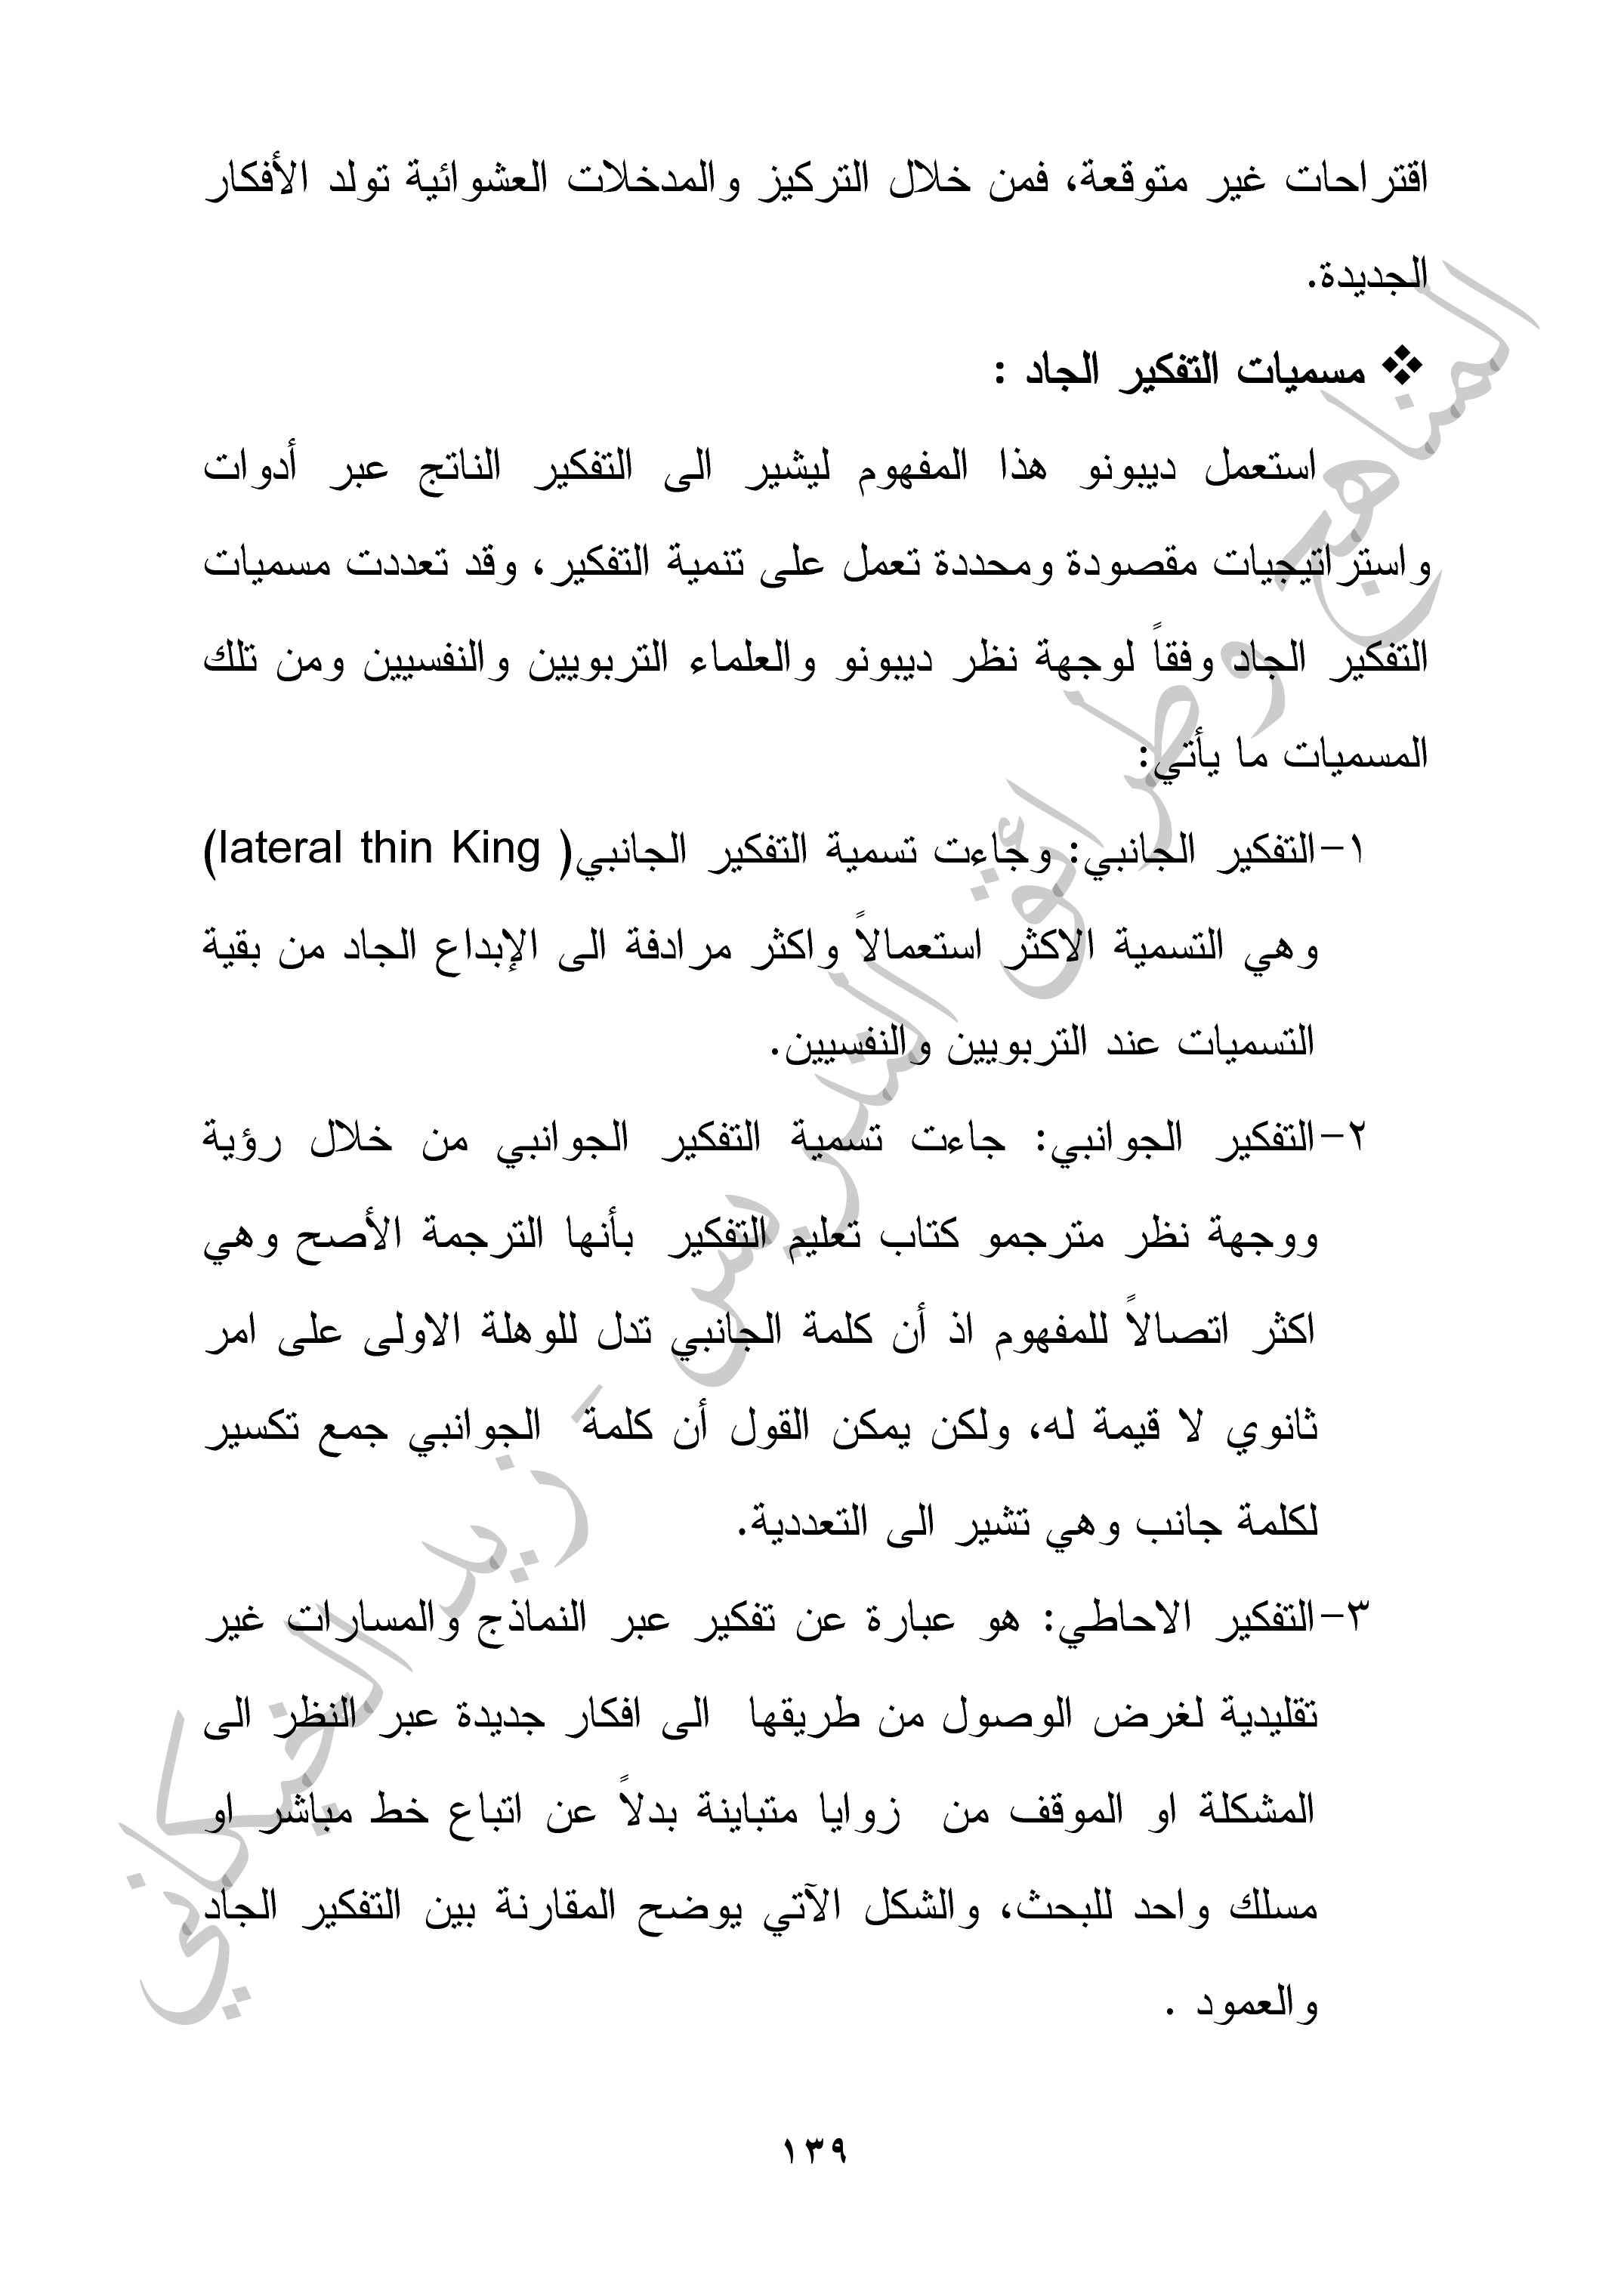 اقتراحات غير متوقعة، فمن خلال التركيز والمدخلات العشوائية تولد الأفكار
الجديدة.
❖ مسميات التفكير الجاد :
استعمل ديبونو هذا المفهوم ليشير الى التفكير الناتج عبر أدوات
واستراتيجيات مقصودة ومحددة تعمل على تنمية التفكير، وقد تعددت مسميات
التفكير الجاد وفقاً لوجهة نظر ديبونو والعلماء التربويين والنفسيين ومن تلك
المسميات ما يأتي:
١-التفكير الجانبي: وجاءت تسمية التفكير الجانبي( lateral thin King)
وهي التسمية الاكثر استعمالاً واكثر مرادفة الى الإبداع الجاد من بقية
التسميات عند التربويين والنفسيين.
٢-التفكير الجوانبي: جاءت تسمية التفكير الجوانبي من خلال رؤية
ووجهة نظر مترجمو كتاب تعليم التفكير بأنها الترجمة الأصح وهي
اكثر اتصالاً للمفهوم اذ أن كلمة الجانبي تدل للوهلة الاولى على امر
ثانوي لا قيمة له، ولكن يمكن القول أن كلمة الجوانبي جمع تكسير
لكلمة جانب وهي تشير الى التعددية.
٣-التفكير الاحاطي: هو عبارة عن تفكير عبر النماذج والمسارات غير
تقليدية لغرض الوصول من طريقها الى افكار جديدة عبر النظر الى
المشكلة او الموقف من زوايا متباينة بدلاً عن اتباع خط مباشر او
مسلك واحد للبحث، والشكل الآتي يوضح المقارنة بين التفكير الجاد
والعمود .
١٣٩
المناهج وطرائق التدريس - زيد الخيكاني